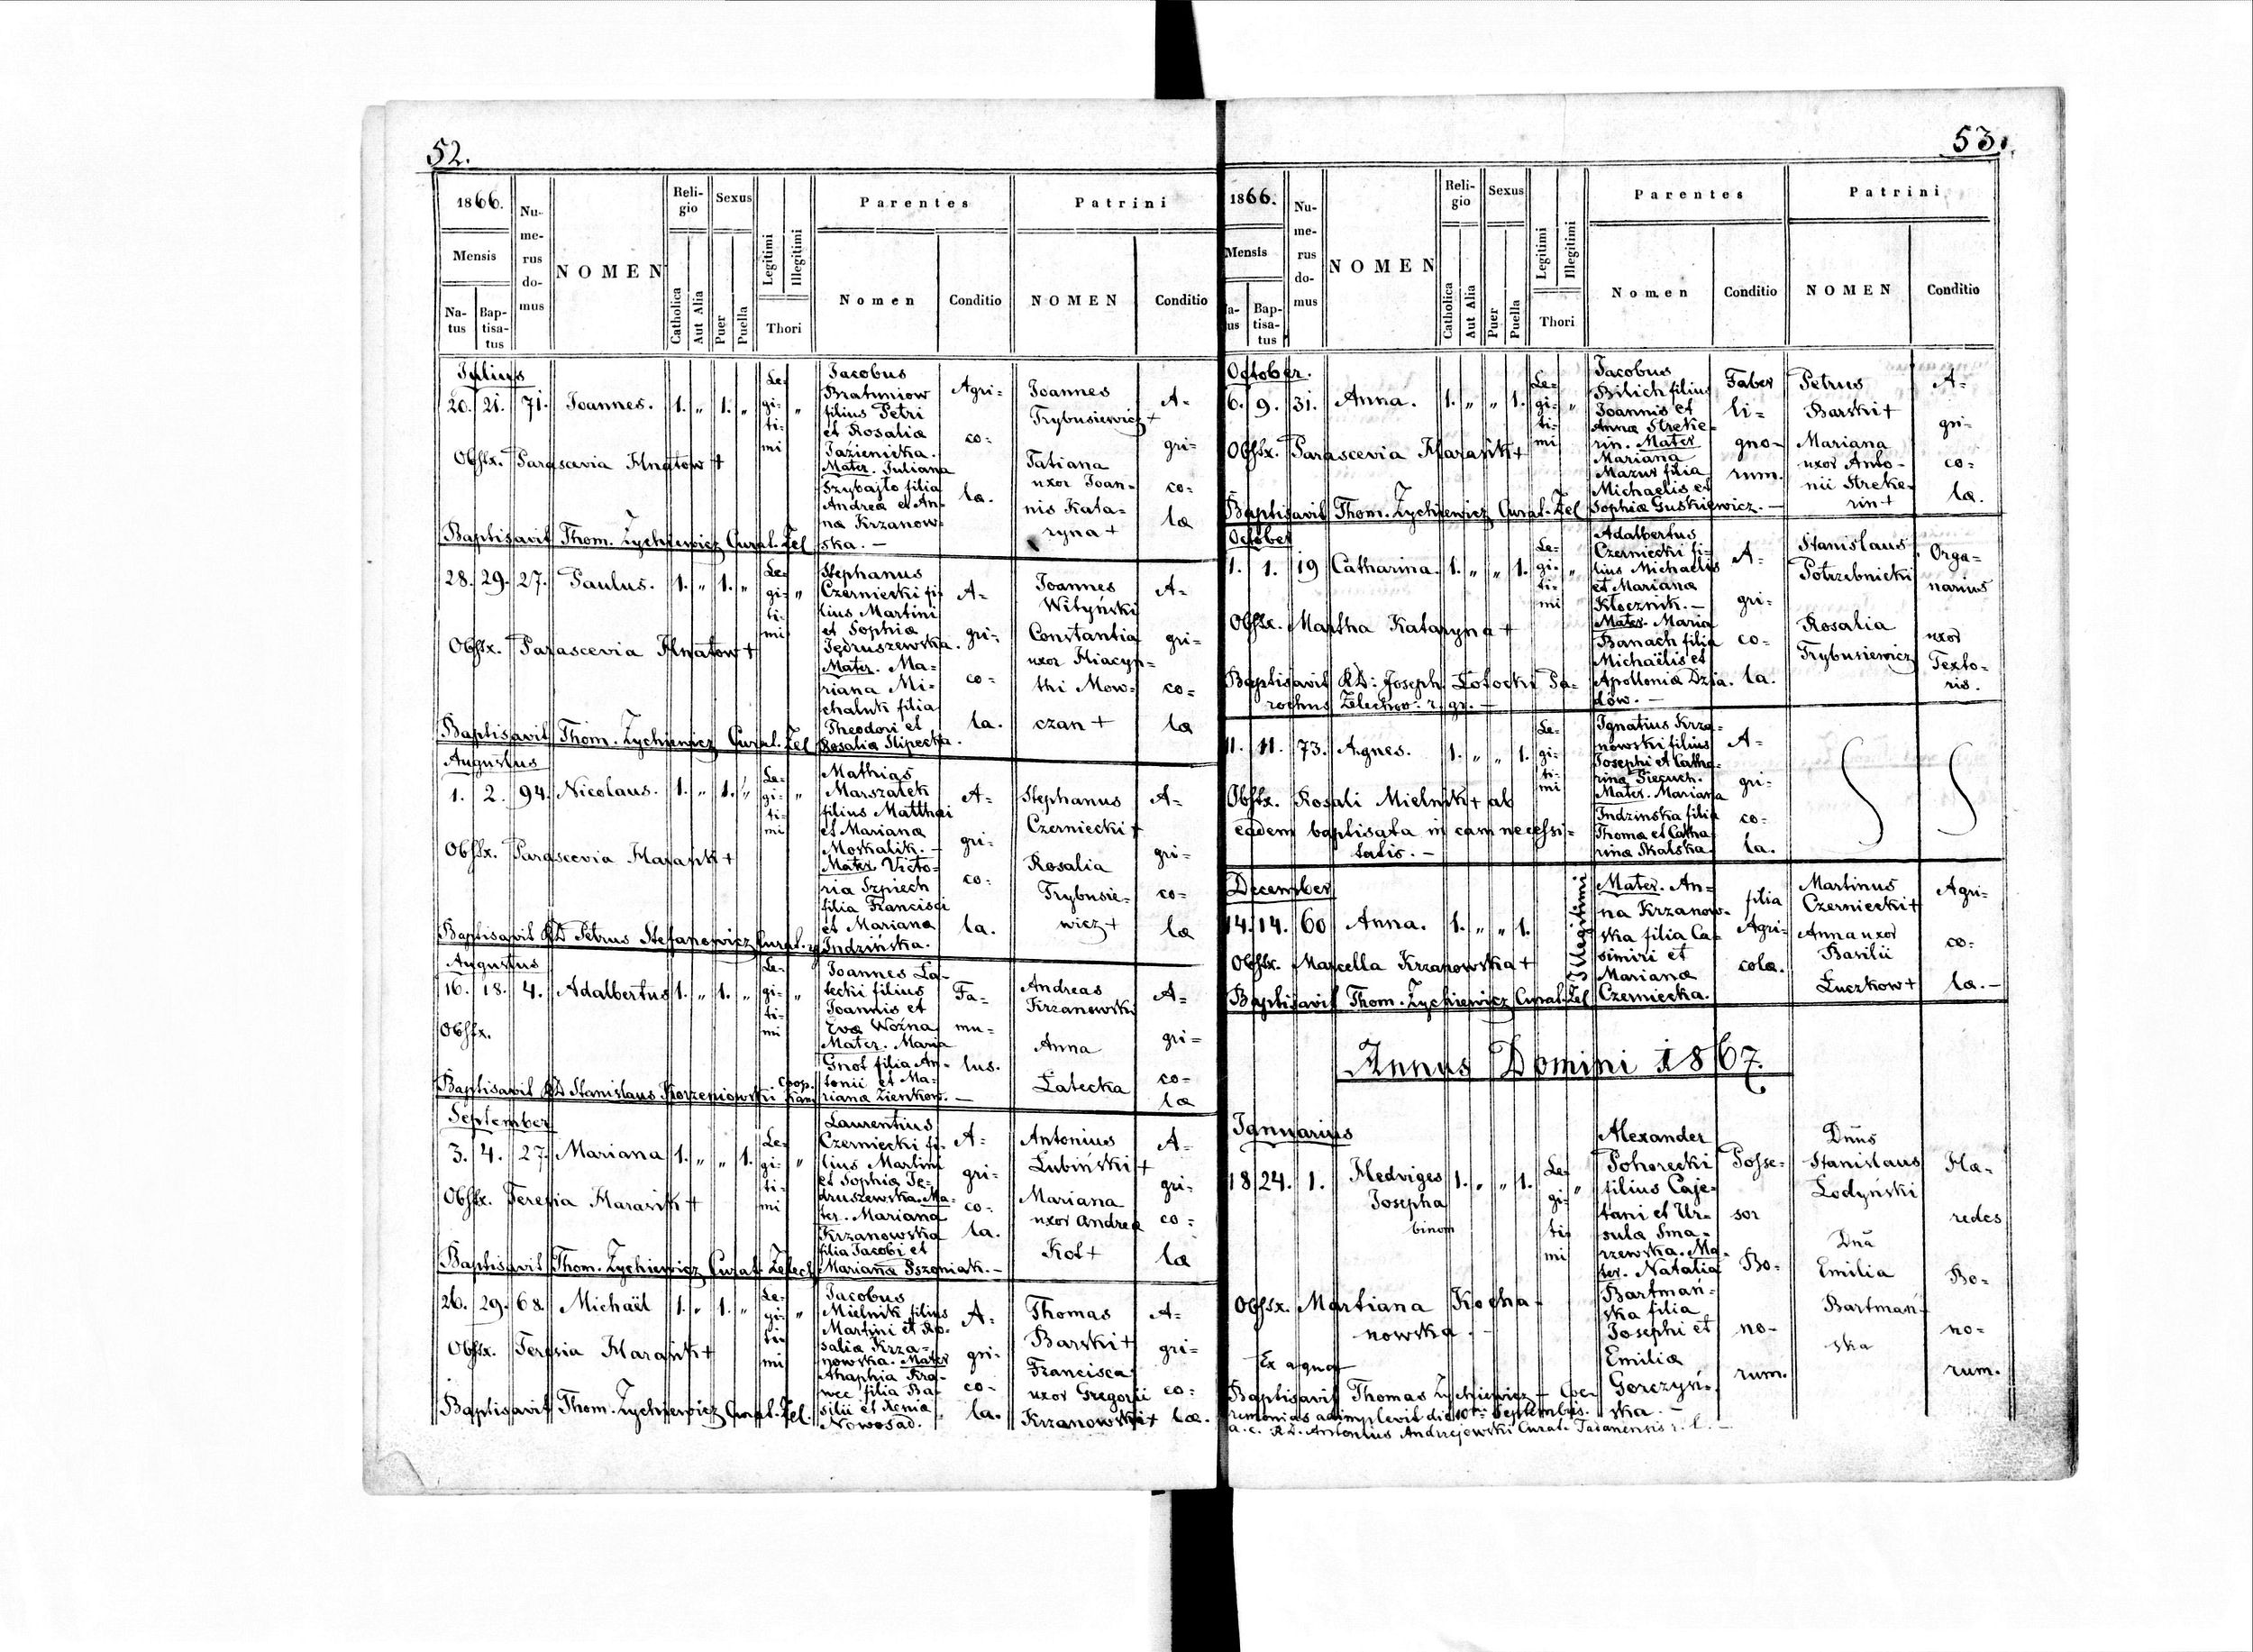 52.
1866.
Mensis
Na-
tus
Bap-
tisa-
tus
Nu-
me-
rus
do-
mus
NOMEN
Reli-
gio
Catholica
Aut Alia
Sexus
Puer
Puella
Legitimi
Illegitimi
Thori
Parentes
Nomen
Conditio
Patrini
NOMEN
Conditio
Julius
20. 21. 71. Joannes. 1. „ 1. „
Le-
gi-
ti-
mi
„
Jacobus
Brahmiow
filius Petri
et Rosaliæ
Jazienicka.
Mater. Juliana
Szybajło filia
Andreæ et An-
næ Krzanow-
ska. —
Agri-
co-
læ.
Joannes
Trybusiewicz +
Tatiana
uxor Joan-
nis Kata-
ryna +
A-
gri-
co-
læ
Obstx. Parascevia Hnatow +
Baptisavit Thom. Zychiewicz Curat. Żel
28. 29. 27. Paulus. 1. „ 1. „
Le-
gi-
ti-
mi
„
Stephanus
Czerniecki fi-
lius Martini
et Sophiæ
Jędruszewska.
Mater. Ma-
riana Mi-
chaluk filia
Theodori et
Rosaliæ Slipecka.
A-
gri-
co-
la.
Joannes
Wityński
Constantia
uxor Hiacyn-
thi Mow-
czan +
A-
gri-
co-
læ
Obstx. Parascevia Hnatow +
Baptisavit Thom. Zychiewicz Curat. Żel
Augustus
1. 2. 94. Nicolaus. 1. „ 1. „
Le-
gi-
ti-
mi
„
Mathias
Marszałek
filius Matthæi
et Marianæ
Moskalik. —
Mater Victo-
ria Szpiech
filia Francisci
et Marianæ
Indzińska.
A-
gri-
co-
la.
Stephanus
Czerniecki +
Rosalia
Trybusie-
wicz +
A-
gri-
co-
læ
Obstx. Parascevia Harasik +
Baptisavit RD Petrus Stefanowicz Curat.
Augustus
16. 18. 4. Adalbertus 1. „ 1. „
Le-
gi-
ti-
mi
„
Joannes La-
tecki filius
Joannis et
Evæ Woźna
Mater. Maria
Gnot filia An-
tonii et Ma-
rianæ Zienkow. —
Fa-
mu-
lus.
Andreas
Krzanowski
Anna
Łatecka
A-
gri-
co-
læ
Obstx.
Baptisavit RD Stanislaus Korzeniowski Coop.
September
3. 4. 27. Mariana 1. „ „ 1.
Le-
gi-
ti-
mi
„
Laurentius
Czerniecki fi-
lius Martini
et Sophiæ Je-
druszewska. Ma-
ter. Mariana
Krzanowska
filia Jacobi et
Marianæ Pszeniak. —
A-
gri-
co-
la.
Antonius
Łubiński +
Mariana
uxor Andreæ
Kot +
A-
gri-
co-
læ
Obstx. Teresia Harasik +
Baptisavit Thom. Zychiewicz Curat. Żelech
26. 29. 68. Michaël 1. „ 1. „
Le-
gi-
ti-
mi
„
Jacobus
Mielnik filius
Martini et Ro-
saliæ Krza-
nowska. Mater
Ahaphia Kra-
wec filia Ba-
silii et Xenia
Nowosad.
A-
gri-
co-
la.
Thomas
Barski +
Francisca
uxor Gregorii
Krzanowski +
A-
gri-
co-
læ.
Obstx. Teresia Harasik +
Baptisavit Thom. Zychiewicz Curat. Żel.
53.
1866.
Mensis
Na-
tus
Bap-
tisa-
tus
Nu-
me-
rus
do-
mus
NOMEN
Reli-
gio
Catholica
Aut Alia
Sexus
Puer
Puella
Legitimi
Illegitimi
Thori
Parentes
Nomen
Conditio
Patrini
NOMEN
Conditio
October.
6. 9. 31. Anna. 1. „ „ 1.
Le-
gi-
ti-
mi
„
Jacobus
Bilich filius
Joannis et
Annæ Streke-
rin. Mater
Mariana
Mazur filia
Michaelis et
Sophiæ Guskiewicz. —
Faber
li-
gno-
rum.
Petrus
Barski +
Mariana
uxor Anto-
nii Streke-
rin +
A-
gri-
co-
læ.
Obstx. Parascevia Harasik +
Baptisavit Thom. Zychiewicz Curat. Żel
October
1. 1. 19 Catharina. 1. „ „ 1.
Le-
gi-
ti-
mi
„
Adalbertus
Czerniecki fi-
lius Michaelis
et Marianæ
Kłocznik. —
Mater. Maria
Banach filia
Michaëlis et
Apolloniæ Dzia-
dów. —
A-
gri-
co-
la.
Stanislaus
Potrzebnicki
Rosalia
Trybusiewicz
Orga-
narius
uxor
Texto-
ris.
Obstx. Martha Kataryna +
Baptisavit RD: Joseph Łotocki Pa-
rochus Żelechow. r. gr. —
11. 11. 73. Agnes. 1. „ „ 1.
Le-
gi-
ti-
mi
Ignatius Krza-
nowski filius
Josephi et Catha-
rinæ Pieczuch.
Mater. Mariana
Indzinska filia
Thomæ et Catha-
rinæ Skalska.
A-
gri-
co-
la.
Obstx. Rosali Mielnik + ab
eadem baptisata in casu necessi-
tatis. —
December
14. 14. 60 Anna. 1. „ „ 1.
Illegitimi
Mater. An-
na Krzanow-
ska filia Ca-
simiri et
Marianæ
Czerniecka.
filia
Agri-
colæ.
Martinus
Czerniecki +
Anna uxor
Basilii
Łuczkow +
Agri-
co-
læ. —
Obstx. Marcella Krzanowska +
Baptisavit Thom. Zychiewicz Curat. Żel
Annus Domini 1867.
Januarius
18 24. 1. Hedviges 1. „ „ 1.
Josepha
binom
Le-
gi-
ti-
mi
„
Alexander
Pohorecki
filius Caje-
tani et Ur-
sula Sma-
rzewska. Ma-
ter. Natalia
Bartmań-
ska filia
Josephi et
Emiliæ
Gorczyń-
ska. —
Posse-
sor
Bo-
no-
rum.
Dnūs
Stanislaus
Łodyński
Dnā
Emilia
Bartmań-
ska
Hæ-
redes
Bo-
no-
rum.
Obstx. Martiana Kocha-
nowska. —
Ex aqua
Baptisavit Thomas Zychiewicz — Cœ-
remonias adimplevit die 10. Septembris.
a. c. RD. Antonius Andrzejowski Curat. Tadanensis r. l. —